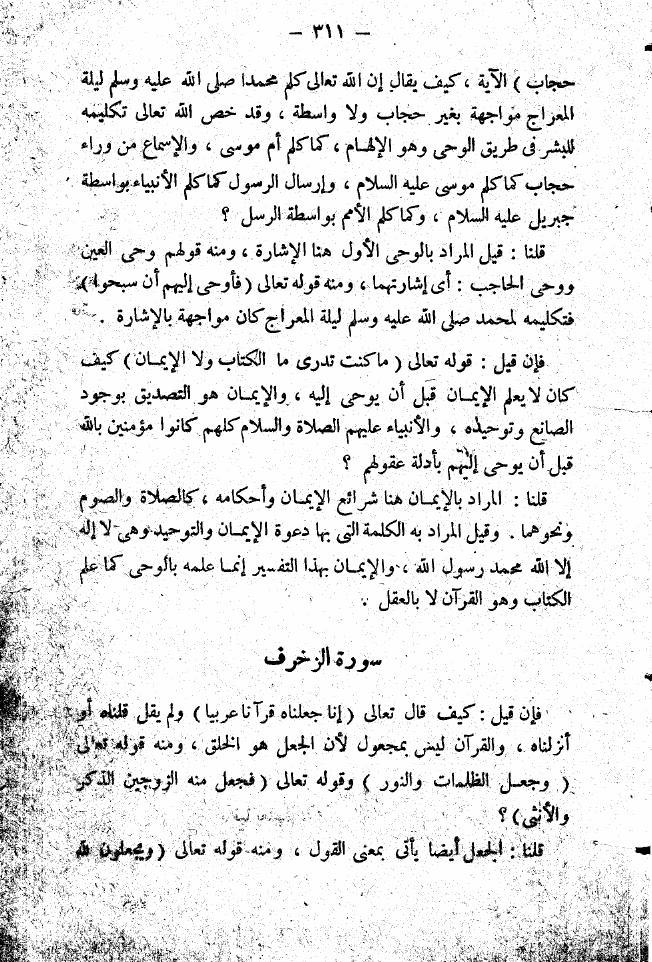 — ٣١١ —
حجاب ) الآية ، كيف يقال إن الله تعالى كلم محمدا صلى الله عليه وسلم ليلة
المعراج مواجهة بغير حجاب ولا واسطة ، وقد خص الله تعالى تكليمه
للبشر فى طريق الوحى وهو الإلهام ، كما كلم أم موسى ، والإسماع من وراء
حجاب كما كلم موسى عليه السلام ، وإرسال الرسول كما كلم الأنبياء بواسطة
جبريل عليه السلام ، وكما كلم الأمم بواسطة الرسل ؟
قلنا : قيل المراد بالوحى الأول هنا الإشارة ، ومنه قولهم وحى العين
ووحى الحاجب : أى إشارتهما ، ومنه قوله تعالى ( فأوحى إليهم أن سبحوا )
فتكليمه لمحمد صلى الله عليه وسلم ليلة المعراج كان مواجهة بالإشارة .
فإن قيل : قوله تعالى ( ما كنت تدرى ما الكتاب ولا الإيمـان ) كيف
كان لا يعلم الإيمـان قبل أن يوحى إليه ، والإيمـان هو التصديق بوجود
الصانع وتوحيده ، والأنبياء عليهم الصلاة والسلام كلهم كانوا مؤمنين بالله
قبل أن يوحى إليهم بأدلة عقولهم ؟
قلنا : المراد بالإيمـان هنا شرائع الإيمـان وأحكامه ، كالصلاة والصوم
ونحوهما . وقيل المراد به الكلمة التى بها دعوة الإيمـان والتوحيد وهى لا إله
إلا الله محمد رسول الله ، والإيمـان بهذا التفسير إنمـا علمه بالوحى كما علم
الكتاب وهو القرآن لا بالعقل .
سورة الزخرف
فإن قيل : كيف قال تعالى ( إنا جعلناه قرآنا عربيا ) ولم يقل قلناه أو
أنزلناه ، والقرآن ليس بمجعول لأن الجعل هو الخلق ، ومنه قوله تعالى
( وجعـل الظلمات والنور ) وقوله تعالى ( فجعل منه الزوجين الذكر
والأنثى ) ؟
قلنا : الجعل أيضا يأتى بمعنى القول ، ومنه قوله تعالى ( ويجعلون لله